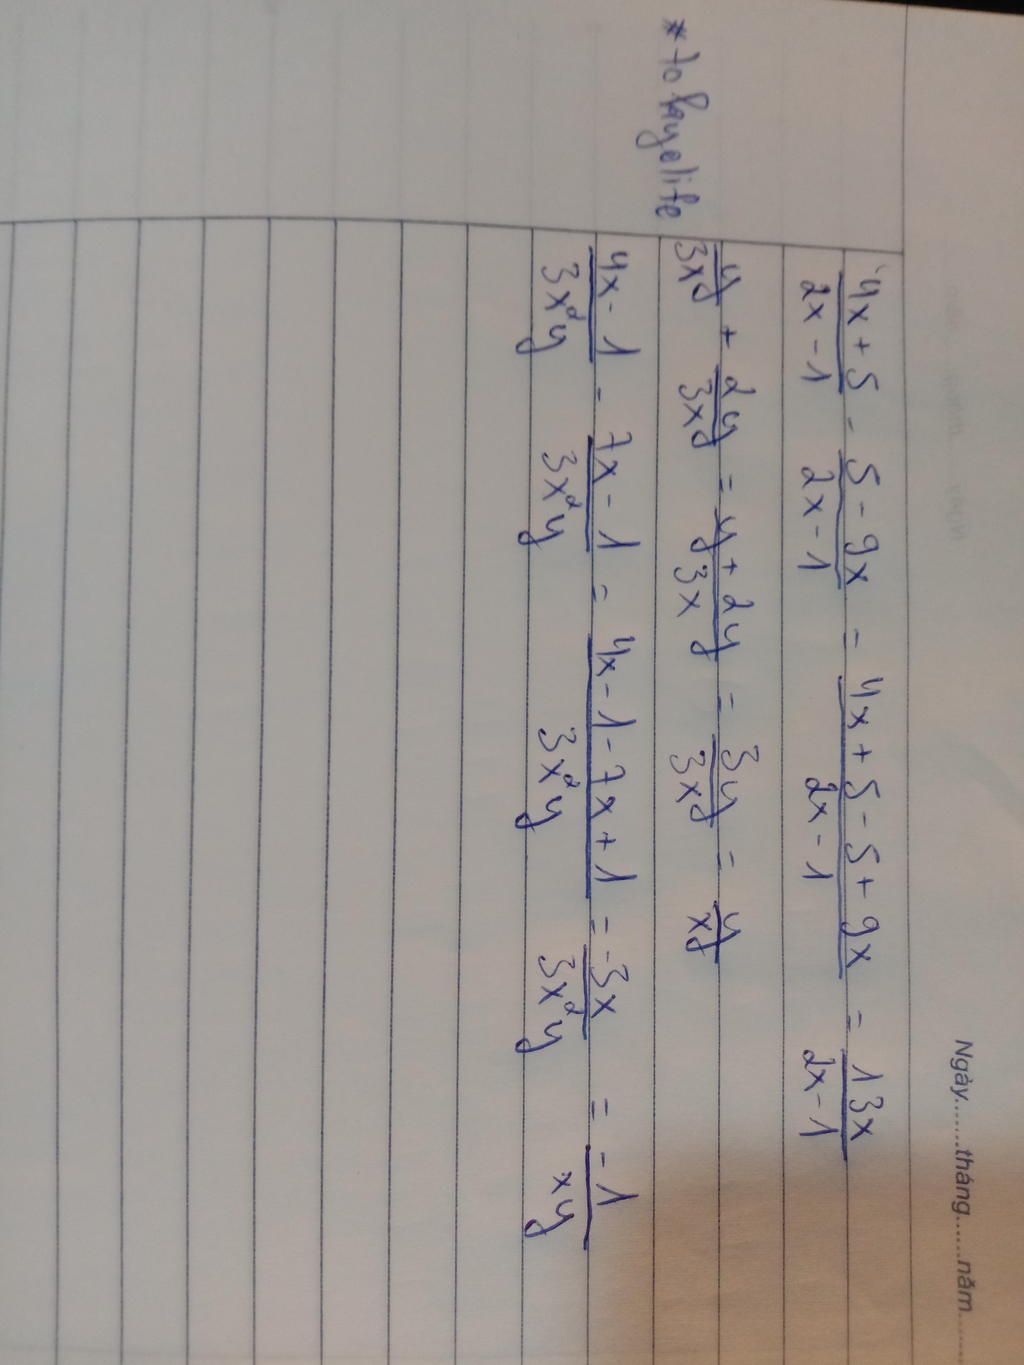 Ngày........tháng.......năm.......
(4x + 5)/(2x - 1) - (5 - 9x)/(2x - 1) = (4x + 5 - 5 + 9x)/(2x - 1) = 13x/(2x - 1)
y/3x + 2y/3x = (y + 2y)/3x = 3y/3x = y/x
(4x - 1)/(3x²y) - (7x - 1)/(3x²y) = (4x - 1 - 7x + 1)/(3x²y) = -3x/(3x²y) = -1/(xy)